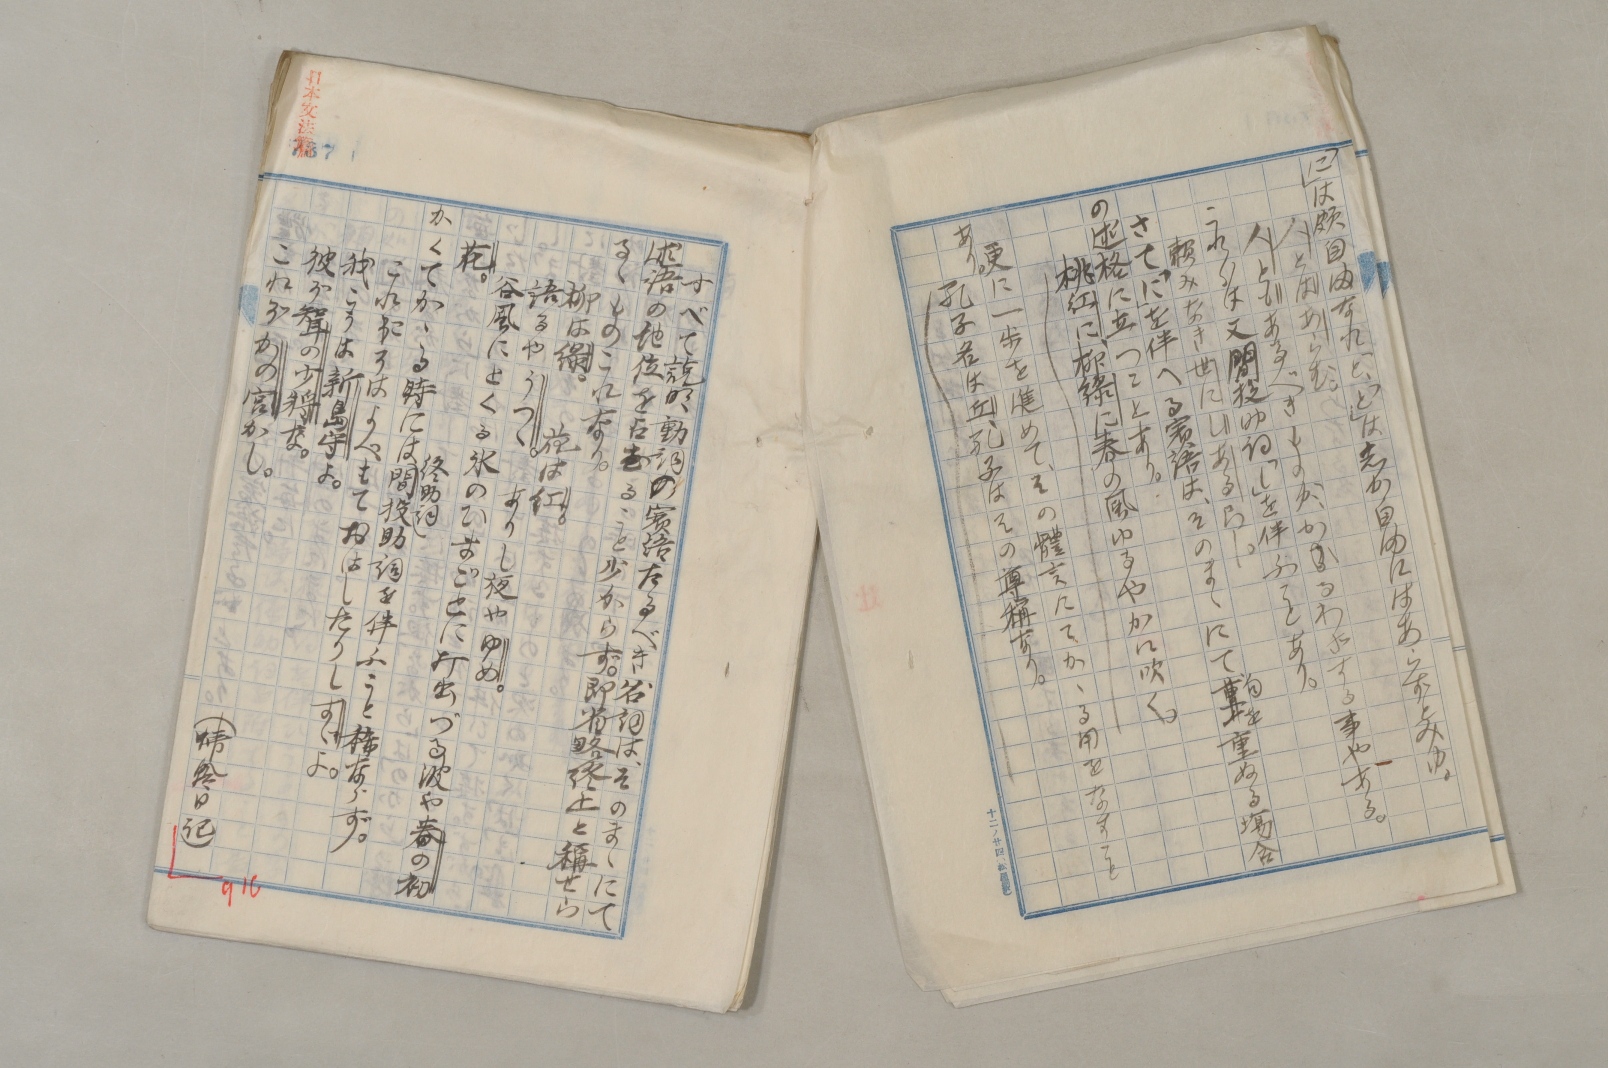 「に」は頗自由なれど、「と」は志か自由にはあらずとみゆ。
人とはあらむ。
人ともあるべきものが、かゝるわざする事やある。
これらは又間投助詞「し」を伴ふことあり。
頼みなき世にしあるらし。
さて「に」を伴へる賓語は、そのまゝにて句を重ぬる場合
の述格に立つことあり。
桃紅に、柳緑に春の風ゆるやかに吹く。
更に一歩を進めて、その體言にてかゝる用をなすこと
あり。
孔子名は丘、孔子はその尊稱なり。
日本文法論
すべて説明動詞の賓語たるべき名詞は、そのまゝにて
述語の地位を占むること少からず。即省略終止と稱せら
るゝものこれなり。
柳は緑。花は紅。
語るやうつゝ。ありし夜やゆめ。
谷風にとくる氷のひまごとに打出づる波や春の初
花。
かくてかゝる時には間投助詞を伴ふこと稀ならず。
終助詞
これおこそはよべもておはしたりしすゞよ。
我こそは新島守よ。
彼が聟の少将な。
これぞかの宮かし。
(蜻蛉日記)
916